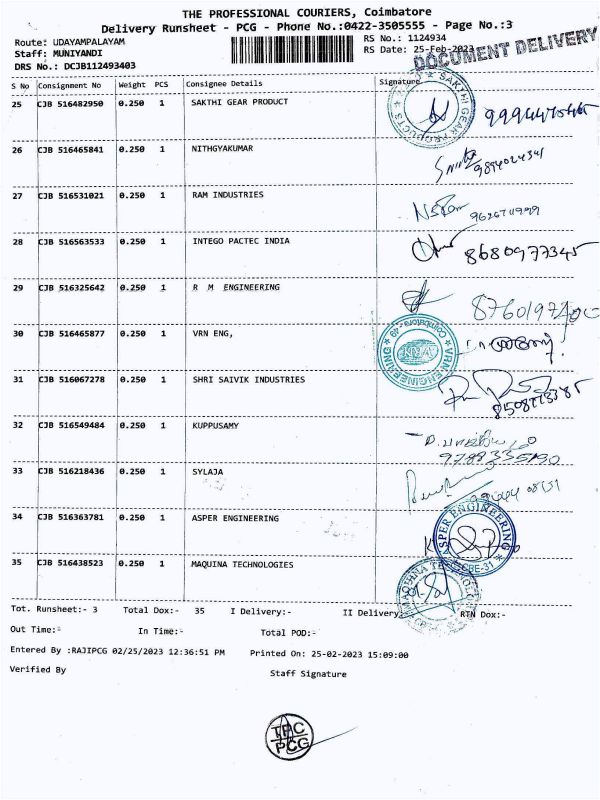 THE PROFESSIONAL COURIERS, Coimbatore
Delivery Runsheet - PCG - Phone No.:0422-3505555 - Page No.:3
Route: UDAYAMPALAYAM RS No.: 1124934
Staff: MUNIYANDI RS Date: 25-Feb-2023
DOCUMENT DELIVERY
DRS No.: DCJB112493403
S No Consignment No Weight PCS Consignee Details Signature
25 CJB 516482950 0.250 1 SAKTHI GEAR PRODUCT
SAKTHI GEAR PRODUCTS
26 CJB 516465841 0.250 1 NITHGYAKUMAR
9894024341
27 CJB 516531021 0.250 1 RAM INDUSTRIES
28 CJB 516563533 0.250 1 INTEGO PACTEC INDIA
8680977345
29 CJB 516325642 0.250 1 R M ENGINEERING
30 CJB 516465877 0.250 1 VRN ENG,
VRN ENGINEERING Coimbatore - 49
31 CJB 516067278 0.250 1 SHRI SAIVIK INDUSTRIES
32 CJB 516549484 0.250 1 KUPPUSAMY
33 CJB 516218436 0.250 1 SYLAJA
34 CJB 516363781 0.250 1 ASPER ENGINEERING
ASPER ENGINEERING CBE-31
35 CJB 516438523 0.250 1 MAQUINA TECHNOLOGIES
Tot. Runsheet:- 3 Total Dox:- 35 I Delivery:- II Delivery:- RTN Dox:-
Out Time:- In Time:- Total POD:-
Entered By :RAJIPCG 02/25/2023 12:36:51 PM Printed On: 25-02-2023 15:09:00
Verified By Staff Signature
TPC
PCG